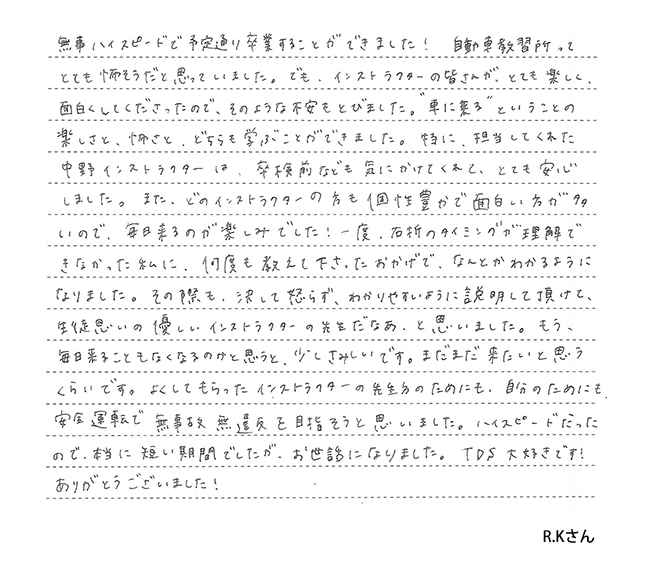 無事ハイスピードで予定通り卒業することができました！ 自動車教習所って
とても怖そうだと思っていました。でも、インストラクターの皆さんが、とても楽しく、
面白くしてくださったので、そのような不安もとびました。"車に乗る"ということの
楽しさと、怖さと、どちらも学ぶことができました。特に、担当してくれた
中野インストラクターは、卒検前なども気にかけてくれて、とても安心
しました。また、どのインストラクターの方も個性豊かで面白い方が多
いので、毎日来るのが楽しみでした！一度、右折のタイミングが理解で
きなかった私に、何度も教えて下さったおかげで、なんとかわかるように
なりました。その際も、決して怒らず、わかりやすいように説明して頂けて、
生徒思いの優しいインストラクターの先生だなあ、と思いました。もう、
毎日来ることもなくなるのかと思うと、少しさみしいです。まだまだ来たいと思う
くらいです。よくしてもらったインストラクターの先生方のためにも、自分のためにも
安全運転で無事故無違反を目指そうと思いました。ハイスピードだった
ので、本当に短い期間でしたが、お世話になりました。TDS大好きです！
ありがとうございました！
R.Kさん